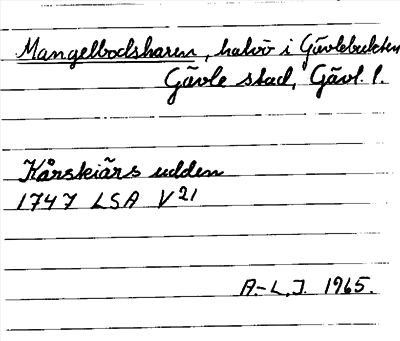 Mangelbodsharen, halvö i Gävlebukten
Gävle stad, Gävl. l.
Kårskiärs udden
1747 LSA V21
A.-L.J. 1965.